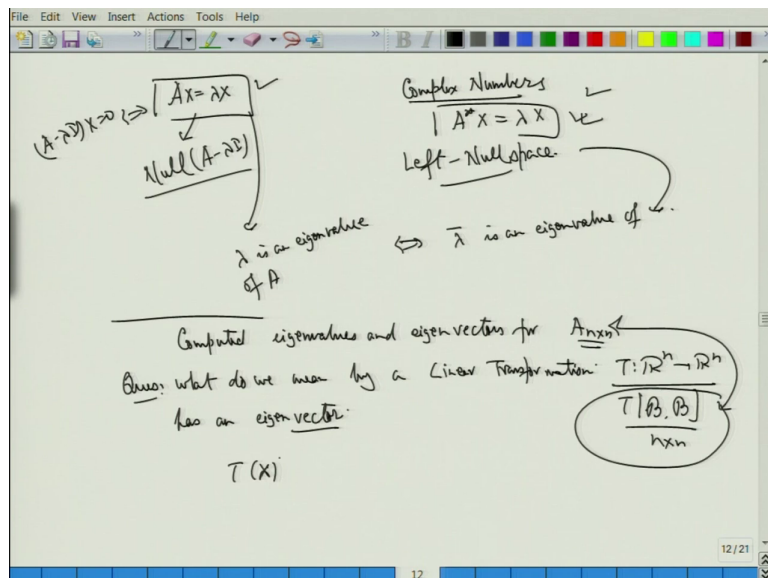 File Edit View Insert Actions Tools Help
Ax = λx
(A-λI)x=0 ⇔
Null(A-λI)
Complex Numbers
A* x = λ x
Left-Nullspace.
λ is an eigenvalue of A ⇔ λ̄ is an eigenvalue of
Computed eigenvalues and eigenvectors for A n×n
Ques: what do we mean by a Linear Transformation T: ℝⁿ → ℝⁿ
has an eigenvector.
T[B, B]
n×n
T(x)
12/21
12